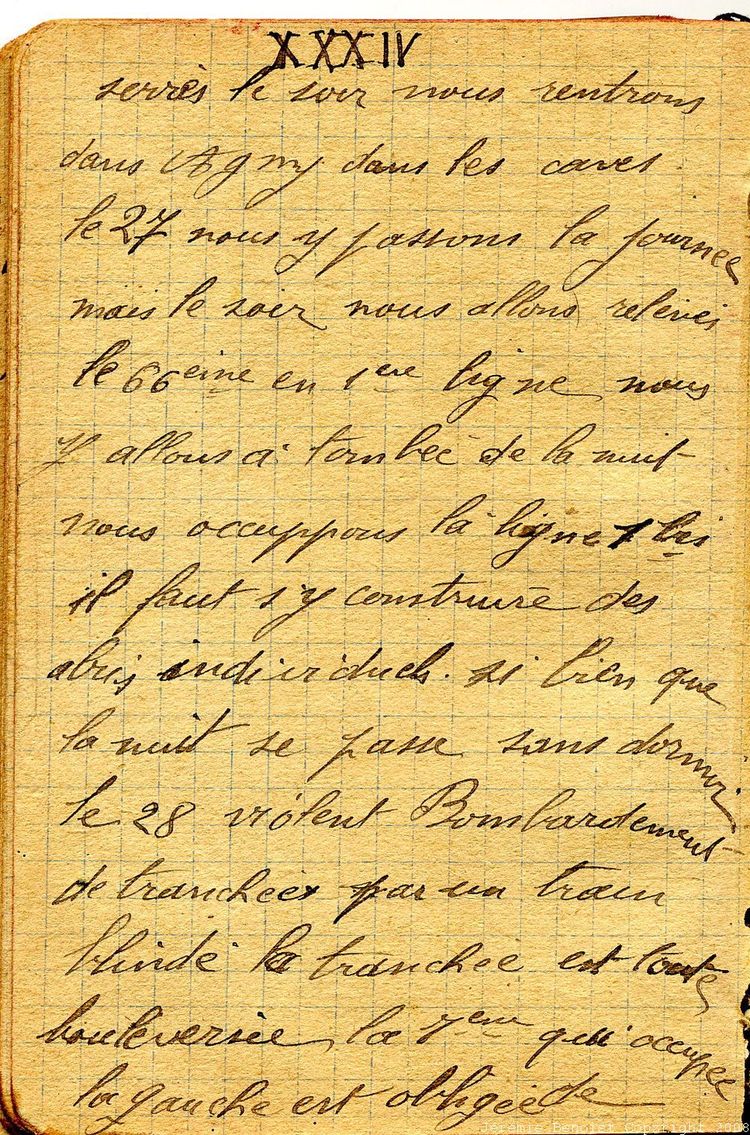 XXXIV
serrés le soir nous rentrons
dans Agny dans les caves.
le 27 nous y passons la journee
mais le soir nous allons relevés
le 66eme en 1ere ligne nous
y allons a tombée de la nuit
nous occuppons la ligne 1 bis
il faut s'y construire des
abris individuels. si bien que
la nuit se passe sans dormir
le 28 violent Bombardement
de tranchées par un train
blindé la tranchée est toute
bouleversée la 7eme qui occupée
la gauche est obligée de
Jeremie Benoist Copyright 2008